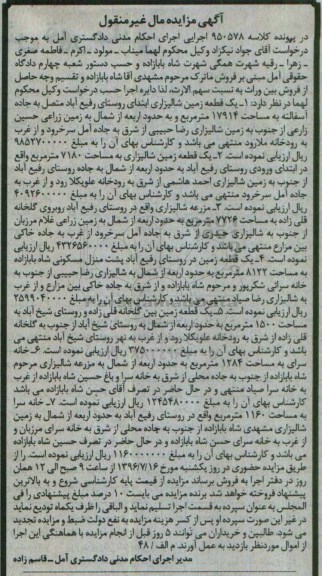 آگهی مزایده مال غیر منقول
در پرونده کلاسه ۹۵۰۵۷۸ اجرایی اجرای احکام مدنی دادگستری آمل به موجب
درخواست آقای جواد نیکزاد وکیل محکوم لهما میناب - مولود - اکرم - فاطمه صغری
- زهرا - رقیه شهرت همگی شهرت شاه بابازاده و حسب دستور شعبه چهارم دادگاه
حقوقی آمل مبنی بر فروش ماترک مرحوم مشهدی آقا شاه بابازاده و تقسیم وجه حاصل
از فروش بین وراث به نسبت سهم الارث، لذا دایره اجرا حسب درخواست وکیل محکوم
لهما در نظر دارد: ۱- یک قطعه زمین شالیزاری ابتدای روستای رفیع آباد متصل به جاده
آسفالته به مساحت ۱۷۹۱۴ مترمربع و به حدود اربعه از شمال به زمین زراعی حسین
زارعی از جنوب به زمین شالیزاری رضا حبیبی از شرق به جاده آمل سرخرود و از غرب
به رودخانه ملارود منتهی می باشد و کارشناس بهای آن را به مبلغ ۹۸۵۲۷۰۰۰۰۰
ریال ارزیابی نموده است. ۲- یک قطعه زمین شالیزاری به مساحت ۷۱۸۰ مترمربع واقع
در ابتدای ورودی روستای رفیع آباد به حدود اربعه از شمال به جاده روستای رفیع آباد
از جنوب به زمین شالیزاری احمد هاشمی از شرق به رودخانه علویکلا رود و از غرب به
جاده آمل سرخرود منتهی می باشد و کارشناس بهای آن را به مبلغ ۴۰۹۲۶۰۰۰۰۰
ریال ارزیابی نموده است. ۳- مزرعه شالیزاری واقع در روستای رفیع آباد روبروی گلخانه
قلی زاده به مساحت ۷۷۲۶ مترمربع به حدود اربعه از شمال به زمین زراعی غلام مرزبان
از جنوب به شالیزاری حیدری از شرق به جاده آمل سرخرود از غرب به جاده خاکی
بین مزارع منتهی می باشد و کارشناس بهای آن را به مبلغ ۴۳۲۶۵۶۰۰۰۰ ریال ارزیابی
نموده است. ۴- یک قطعه زمین در روستای رفیع آباد پشت منزل مسکونی شاه بابازاده
به مساحت ۸۱۲۲ مترمربع به حدود اربعه از شمال به شالیزاری رضا حبیبی از جنوب به
خانه سرائی شکرپور و مرحوم شاه بابازاده و از شرق به جاده خاکی بین مزارع و از غرب
به شالیزاری رضا صیاد منتهی می باشد و کارشناس بهای آن را به مبلغ ۲۵۹۹۰۴۰۰۰۰
ریال ارزیابی نموده است. ۵- یک قطعه زمین بین گلخانه قلی زاده و روستای شیخ آباد به
مساحت ۱۵۰۰ مترمربع به حدود اربعه از شمال به روستای شیخ آباد از جنوب به گلخانه
قلی زاده از شرق به رودخانه علویکلا رود و از غرب به نهر روستای شیخ آباد منتهی می
باشد و کارشناس بهای آن را به مبلغ ریال ارزیابی نموده است. ۶- خانه
سرای به مساحت ۱۲۸۴ مترمربع به حدود اربعه از شمال به مزرعه شالیزاری مرحوم
شاه بابازاده از جنوب به جاده محلی از شرق به خانه سرا و باغ حسین شاه بابازاده از غرب
به خانه سرا سید منتهی و در حال حاضر در تصرف آقای حسن شاه بابازاده می باشد
کارشناس بهای آن را به مبلغ ۱۲۴۵۴۸۰۰۰۰ ریال ارزیابی نموده است. ۷- خانه سرا
به مساحت ۱۱۶۰ مترمربع واقع در روستای رفیع آباد به حدود اربعه از شمال به زمین
شالیزاری مشهدی شاه بابازاده از جنوب به جاده محلی از شرق به خانه سرای مرزبان و
از غرب به خانه سرای حسن شاه بابازاده و در حال حاضر در تصرف حسین شاه بابازاده
می باشد و کارشناس بهای آن را به مبلغ ۱۱۶۰۰۰۰۰۰۰ ریال ارزیابی نموده است. را از
طریق مزایده حضوری در روز یکشنبه مورخ ۱۳۹۶/۷/۱۶ از ساعت ۹ صبح الی ۱۲ همان
روز در دفتر اجرا به فروش برساند مزایده از قیمت پایه کارشناسی شروع و به بالاترین
پیشنهاد فروخته خواهد شد. برنده مزایده می بایست ۱۰ درصد مبلغ پیشنهادی را فی
المجلس به عنوان سپرده به قسمت اجرا تسلیم نماید و الباقی را ظرف یکماه تودیع نماید
در غیر این صورت سپرده او پس از کسر هزینه مزایده به نفع دولت ضبط و مزایده تجدید
می شود. طالبین و خریداران می توانند ۵ روز قبل از انجام مزایده با هماهنگی این اجرا
از اموال موردنظر بازدید به عمل آورند. م الف / ۴۸
مدیر اجرای احکام مدنی دادگستری آمل - قاسم زاده